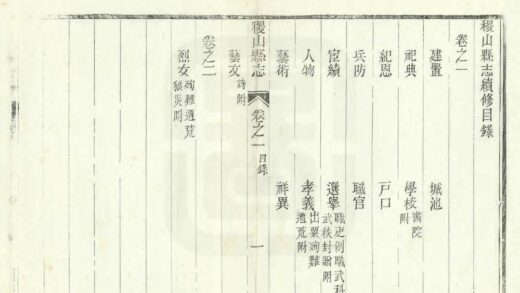 稷山縣志續修目錄
卷之一
建置 城池
祀典 學校 書院附
紀恩 戶口
兵防 職官
宦績 選舉 職吏例職武科武秩封贈附
人物 孝義 出粟殉難遭荒附
藝術 祥異
稷山縣志 卷之一 目錄 一
藝文 詩附
卷之二
烈女 殉難遭荒狼災附